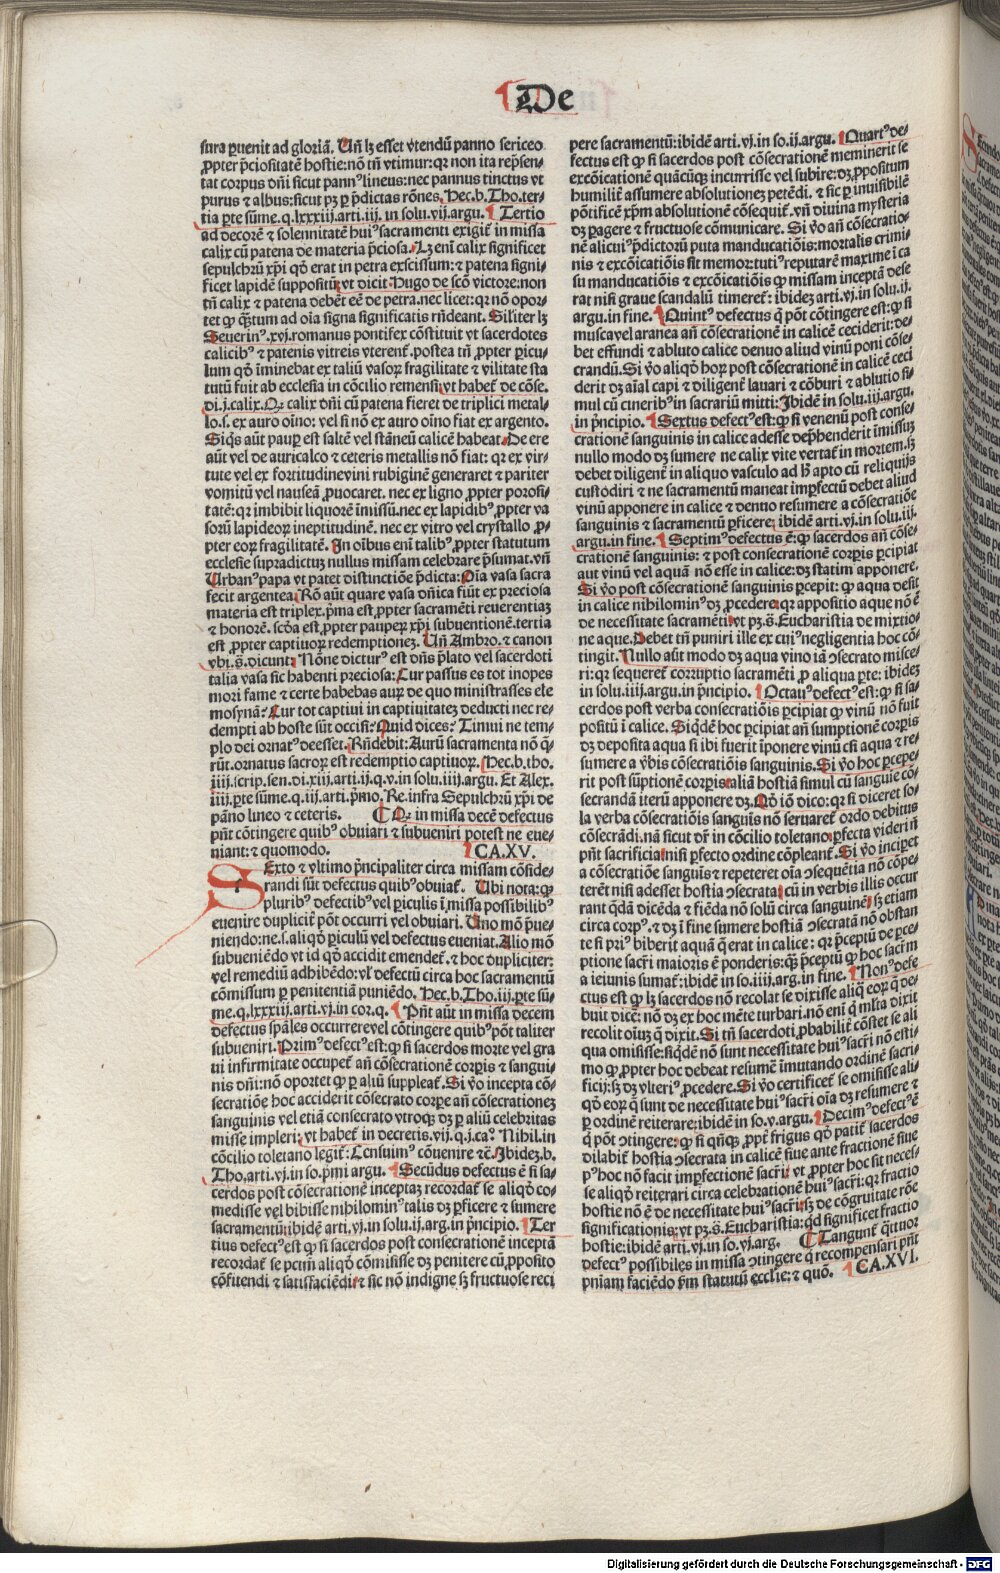 De
sura ꝑuenit ad gloriã. Uñ lꝫ esset vtendũ panno sericeo
ꝓpter p̃ciositatẽ hostie: nõ tñ vtimur: qꝛ non ita rep̃sen-
tat corpus dñi sicut pannꝰ lineus: nec pannus tinctus vt
purus ⁊ albus: sicut pꝫ ꝑ p̃dictas rõnes. Hec.b. Tho. ter-
tia ꝑte sũme.q.lxxxiij.arti.iij. in solu.vij.argu. Tertio
ad decorẽ ⁊ solennitatẽ huiꝰ sacramenti exigit̃ in missa
calix cũ patena de materia p̃ciosa. Lꝫ enĩ calix significet
sepulchrũ xp̃i qđ erat in petra exscissum: ⁊ patena signi-
ficet lapidẽ suppositũ vt dicit Hugo de scõ victore: non
tñ calix ⁊ patena debẽt eẽ de petra. nec licet: qꝛ nõ opor-
tet ꝙ q̃tum ad oĩa signa significatis rñdeant. Siliter lꝫ
Seuerinꝰ.xvj.romanus pontifex cõstituit vt sacerdotes
calicibꝰ ⁊ patenis vitreis vterent̃. postea tñ ꝓpter ꝑicu-
lum qđ ĩminebat ex taliũ vasoꝝ fragilitate ⁊ vilitate sta
tutũ fuit ab ecclesia in cõcilio remensi: vt habet̃ de cõse.
di.j.calix. Qꝛ calix dñi cũ patena fieret de triplici metal-
lo.s. ex auro oĩno: vel si nõ ex auro oĩno fiat ex argento.
Siq̃s aũt pauꝑ est saltẽ vel stãneũ calicẽ habeat. De ere
aũt vel de auricalco ⁊ ceteris metallis nõ fiat: qꝛ ex vir-
tute vel ex fortitudinevini rubiginẽ generaret ⁊ pariter
vomitũ vel nauseã ꝓuocaret. nec ex ligno ꝓpter porosi-
tatẽ: qꝛ imbibit liquorẽ ĩmissũ. nec ex lapidibꝰ ꝓpter va
sorũ lapideoꝝ ineptitudinẽ. nec ex vitro vel crystallo ꝓ-
pter eoꝝ fragilitatẽ. In oĩbus enĩ talibꝰ ꝓpter statutum
ecclesie supradictuꝫ nullus missam celebrare p̃sumat. vñ
Urbanꝰ papa vt patet distinctiõe p̃dicta: Oĩa vasa sacra
fecit argentea. Rõ aũt quare vasa dñica fiũt ex preciosa
materia est triplex. p̃ma est ꝓpter sacramẽti reuerentiaꝫ
⁊ honorẽ. scõa est ꝓpter pauperꝝ xp̃i subuentionẽ. tertia
est ꝓpter captiuoꝝ redemptionez. Uñ Ambro. ⁊ canon
vbi.s. dicunt: Nõne dicturꝰ est dñs p̃lato vel sacerdoti
talia vasa sic habenti preciosa: Cur passus es tot inopes
mori fame ⁊ certe habebas auꝝ de quo ministrasses ele
mosynã? Cur tot captiui in captiuitateꝫ deducti nec re-
dempti ab hoste sũt occisi? Quid dices? Timui ne tem-
plo dei ornatꝰ deesset. Rñdebit: Aurũ sacramenta nõ q̃-
rũt. ornatus sacroꝝ est redemptio captiuoꝝ. Hec.b.tho.
iiij.scrip.sen.di.xiij.arti.ij.q.v.in solu.iiij.argu. Et Alex.
iiij.ꝑte sũme.q.iij.arti.p̃mo. Re. infra Sepulchrũ xp̃i de
pãno lineo ⁊ ceteris. ¶ Qꝛ in missa decẽ defectus
pñt cõtingere quibꝰ obuiari ⁊ subueniri potest ne eue-
niant: ⁊ quomodo. CA.XV.
SExto ⁊ vltimo p̃ncipaliter circa missam cõside-
randi sũt defectus quibꝰ obuiat̃. Ubi nota: ꝙ
pluribꝰ defectibꝰ vel ꝑiculis ĩ missa possibilibꝰ
euenire duplicit̃ põt occurri vel obuiari. Uno mõ p̃ue-
niendo: ne.s.aliqđ ꝑiculũ vel defectus eueniat. Alio mõ
subueniẽdo vt id qđ accidit emendet̃. ⁊ hoc dupliciter:
vel remediũ adhibẽdo: vł defectũ circa hoc sacramentũ
cõmissum ꝑ penitentiã puniẽdo. Hec.b. Tho.iij.ꝑte sũ-
me.q.lxxxiij.arti.vj.in coꝛ.q. ¶ Pñt aũt in missa decem
defectus sp̃ales occurrerevel cõtingere quibꝰ põt taliter
subueniri. Primꝰ defectꝰ est: ꝙ si sacerdos morte vel gra
ui infirmitate occupet̃ añ cõsecrationẽ corꝑis ⁊ sangui-
nis dñi: nõ oportet ꝙ ꝑ aliũ suppleat̃. Si v̾o incepta cõ-
secratiõe hoc acciderit cõsecrato corꝑe añ cõsecrationeꝫ
sanguinis vel etiã consecrato vtroqꝫ dꝫ ꝑ aliũ celebritas
misse impleri: vt habet̃ in decretis.vij.q.j.caꝰ Nihil.in
cõcilio toletano legit̃: Censuimꝰ cõuenire ⁊c̃. Ibideꝫ.b.
Tho.arti.vj.in so.p̃mi argu. ¶ Secũdus defectus ẽ si sa-
cerdos post cõsecrationẽ inceptaꝫ recordat̃ se aliqđ co-
medisse vel bibisse nihilominꝰ talis dꝫ ꝑficere ⁊ sumere
sacramentũ: ibidẽ arti.vj.in solu.ij.arg.in p̃ncipio. ¶ Ter
tius defectꝰ est ꝙ si sacerdos post consecrationẽ inceptã
recordat̃ se pctm̃ aliqđ cõmisisse dꝫ penitere cũ ꝓposito
cõfitendi ⁊ satisfaciẽdi: ⁊ sic nõ indigne sꝫ fructuose reci
pere sacramentũ: ibidẽ arti.vj.in so.ij.argu. ¶ Quartꝰ de-
fectus est ꝙ si sacerdos post cõsecrationẽ meminerit se
excõicationẽ quãcũqꝫ incurrisse vel subire: dꝫ ꝓpositum
humilit̃ assumere absolutioneꝫ petẽdi. ⁊ sic ꝑ inuisibilẽ
põtificẽ xp̃m absolutionẽ cõsequit̃. vñ diuina mysteria
dꝫ ꝑagere ⁊ fructuose cõmunicare. Si v̾o añ cõsecratio-
nẽ alicuiꝰ p̃dictorũ puta manducatiõis: mortalis crimi-
nis ⁊ excõicatiõis sit memor: tutiꝰ reputarẽ maxime ĩ ca
su manducatiõis ⁊ excõicatiõis ꝙ missam inceptã dese
rat nisi graue scandalũ timeret̃: ibideꝫ arti.vj.in solu.ij.
argu.in fine. ¶ Quintꝰ defectus q̃ põt cõtingere est: ꝙ si
muscavel aranea añ cõsecrationẽ in calicẽ ceciderit: de-
bet effundi ⁊ abluto calice denuo aliud vinũ poni cõse-
crandũ. Si v̾o aliqđ hoꝝ post cõsecrationẽ in calicẽ ceci
derit dꝫ aĩal capi ⁊ diligent̃ lauari ⁊ cõburi ⁊ ablutio si-
mul cũ cineribꝰ in sacrariũ mitti: Ibidẽ in solu.iij.argu.
in p̃ncipio. ¶ Sextus defectꝰ est: ꝙ si venenũ post conse-
crationẽ sanguinis in calice adesse dep̃henderit ĩmissuꝫ
nullo modo dꝫ sumere ne calix vite vertat̃ in mortem. sꝫ
debet diligent̃ in aliquo vasculo ad hꝫ apto cũ reliquijs
custodiri ⁊ ne sacramentũ maneat imꝑfectũ debet aliud
vinũ apponere in calice ⁊ denuo resumere a cõsecratiõe
sanguinis ⁊ sacramentũ ꝑficere: ibidẽ arti.vj.in solu.iij.
argu.in fine. ¶ Septimꝰ defectus ẽ: ꝙ sacerdos añ cõse-
crationẽ sanguinis: ⁊ post consecrationẽ corꝑis ꝑcipiat
aut vinũ vel aquã nõ esse in calice: dꝫ statim apponere.
Si v̾o post cõsecrationẽ sanguinis ꝑcepit: ꝙ aqua desit
in calice nihilominꝰ dꝫ ꝓcedere: qꝛ appositio aque nõ ẽ
de necessitate sacramẽti: vt pꝫ.s. Eucharistia de mixtio-
ne aque. Debet tñ puniri ille ex cuiꝰ negligentia hoc cõ-
tingit. Nullo aũt modo dꝫ aqua vino iã ɔsecrato misce-
ri: qꝛ sequeret̃ corruptio sacramẽti ꝓ aliqua ꝑte: ibideꝫ
in solu.iiij.argu.in p̃ncipio. ¶ Octauꝰ defectꝰ est: ꝙ si sa-
cerdos post verba consecratiõis ꝑcipiat ꝙ vinũ nõ fuit
positũ ĩ calice. Siqdẽ hoc ꝑcipiat añ sumptionẽ corꝑis
dꝫ deposita aqua si ibi fuerit ĩponere vinũ cũ aqua ⁊ re-
sumere a v̾bis cõsecratiõis sanguinis. Si v̾o hoc ꝑcepe-
rit post sũptionẽ corꝑis: aliã hostiã simul cũ sanguie cõ-
secrandã iterũ apponere dꝫ. Qđ iõ dico: qꝛ si diceret so-
la verba cõsecratiõis sanguis nõ seruaret̃ ordo debitus
cõsecrãdi. nã sicut dr̃ in cõcilio toletano: ꝑfecta videri ñ
pñt sacrificia: nisi ꝑfecto ordine cõpleant̃. Si v̾o incipet
a cõsecratiõe sanguis ⁊ repeteret oĩa ɔsequẽtia nõ cõpe-
terẽt nisi adesset hostia ɔsecrata: cũ in verbis illis occur
rant qdã dicẽda ⁊ fiẽda nõ solũ circa sanguinẽ: sꝫ etiam
circa corpꝰ. ⁊ dꝫ ĩ fine sumere hostiã ɔsecratã nõ obstan
te si priꝰ biberit aquã q̃ erat in calice: qꝛ p̃ceptũ de ꝑce-
ptione sacr̃i maioris ẽ ponderis: q̃ꝫ p̃ceptũ ꝙ hoc sacr̃m
a ieiunis sumat̃: ibidẽ in so.iiij.arg.in fine. ¶ Nonꝰ defe
ctus est ꝙ lꝫ sacerdos nõ recolat se dixisse aliq̃ eoꝝ q̃ de-
buit dicẽ: nõ dꝫ ex hoc mẽte turbari. nõ enĩ q̃ mlta dixit
recolit oĩuꝫ q̃ dixit. Si tñ sacerdoti ꝓbabilit̃ cõstet se ali
qua omisisse: siqdẽ nõ sunt necessitate huiꝰ sacr̃i nõ esti-
mo ꝙ ꝓpter hoc debeat resumẽ imutando ordinẽ sacri-
ficij: sꝫ dꝫ vlteriꝰ ꝓcedere. Si v̾o certificet̃ se omisisse ali-
qđ eoꝝ q̃ sunt de necessitate huiꝰ sacr̃i oĩa dꝫ resumere ⁊
ꝑ ordinẽ reiterare: ibidẽ in so.v.argu. ¶ Decimꝰ defectꝰ ẽ
q̃ põt ɔtingere: ꝙ si qñqꝫ ꝓpt̃ frigus qđ patit̃ sacerdos
dilabit̃ hostia ɔsecrata in calicẽ siue ante fractionẽ siue
pꝰ hoc nõ facit imꝑfectionẽ sacr̃i: vt ꝓpter hoc sit neces-
se aliqđ reiterari circa celebrationẽ huiꝰ sacr̃i: qꝛ fractio
hostie nõ ẽ de necessitate huiꝰ sacr̃i: sꝫ de cõgruitate rõe
significationis: vt pꝫ.s. Eucharistia: qd significet fractio
hostie: ibidẽ arti.vj.in so.vj.arg. ¶ Tangunt̃ q̃tuor
defectꝰ possibiles in missa ɔtingere q̃ recompensari pñt
pniam faciẽdo ẜm statutũ ecclie: ⁊ quõ. CA.XVI.
Digitalisierung gefördert durch die Deutsche Forschungsgemeinschaft - DFG